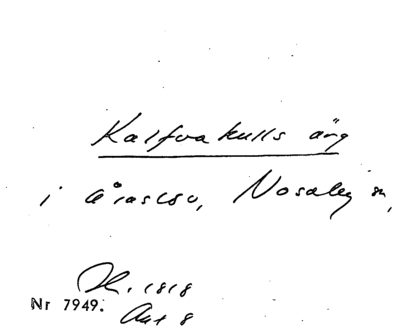 Kalfvakulls äng
i Åraslöv, Nosaby sn,
Nr 7949.
Akt 8